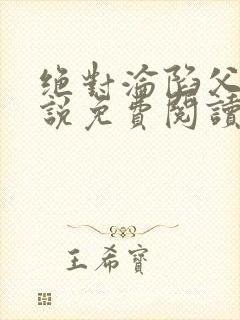 絕對淪陷父
說免費閱讀
王希寶